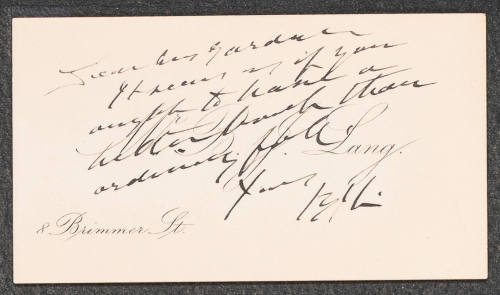 Dear Mrs Gardner
It seems as if you
ought to have a
better book than
ordinary folk.
Lang.
Yours
8 Brimmer St.